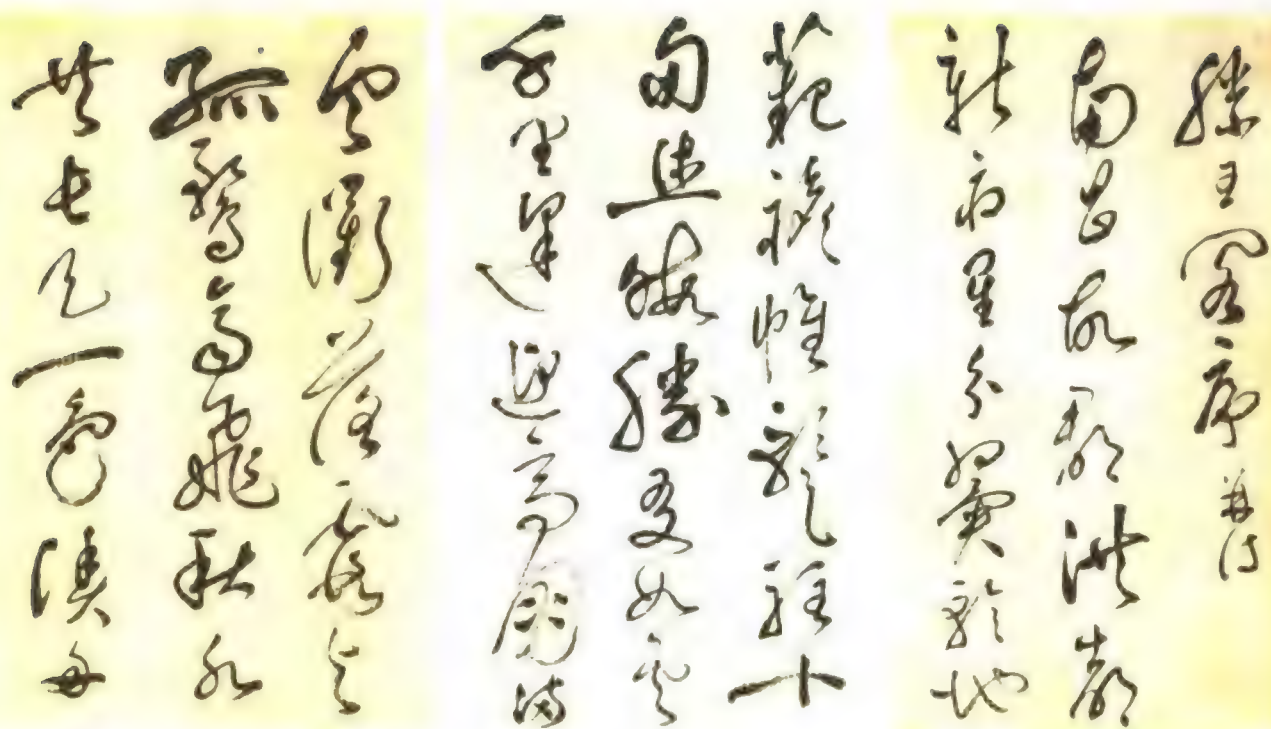 滕王閣序 并詩
南昌故郡洪都
新府星分翼軫地
範襜帷暫駐十
旬休暇勝友如雲
千里逢迎高朋滿
雲衢落霞與
孤鶩齊飛秋水
共長天一色漁舟